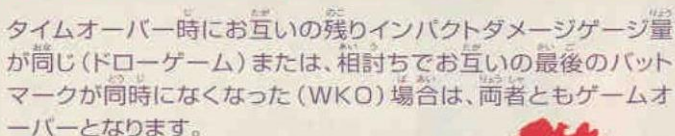 タイムオーバー時にお互いの残りインパクトダメージゲージ量
が同じ(ドローゲーム)または、相討ちでお互いの最後のバット
マークが同時になくなった(WKO)場合は、両者ともゲームオ
ーバーとなります。